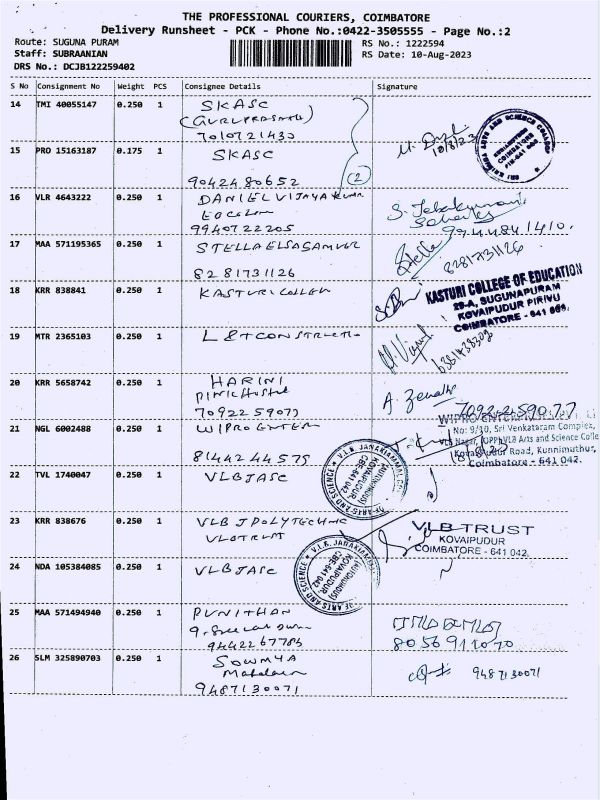 THE PROFESSIONAL COURIERS, COIMBATORE
Delivery Runsheet - PCK - Phone No.:0422-3505555 - Page No.:2
Route: SUGUNA PURAM
RS No.: 1222594
Staff: SUBRAANIAN
RS Date: 10-Aug-2023
DRS No.: DCJB122259402
S No Consignment No Weight PCS Consignee Details Signature
14 TMI 40055147 0.250 1 SKASC
(GURUPRASATH)
7010721430
10/8/23
15 PRO 15163187 0.175 1 SKASC
9042480652
(2)
16 VLR 4643222 0.250 1 DANIEL VIJAYAKUMAR
9940722205
17 MAA 571195365 0.250 1 STELLA ELSA SAMUEL
8281731126
Stella
8281731126
18 KRR 838841 0.250 1 KASTURI COLLEGE
KASTURI COLLEGE OF EDUCATION
29-A, SUGUNAPURAM
KOVAIPUDUR PIRIVU
COIMBATORE - 641 008.
19 MTR 2365103 0.250 1 L&T CONSTRUCTION
20 KRR 5658742 0.250 1 HARINI
PINK HOSTEL
7092259077
7092259077
21 NGL 6002488 0.250 1 WIPRO ENTER
8144244575
No: 9/10, Sri Venkataram Complex,
VLB Nagar, (OPP)VLB Arts and Science Colle
Kovaipudur Road, Kunnimuthur,
Coimbatore - 641 042.
22 TVL 1740047 0.250 1 VLBJASC
23 KRR 838676 0.250 1 VLB J POLYTECHNIC
VLB TRUST
VLB TRUST
KOVAIPUDUR
COIMBATORE - 641 042.
24 NDA 105384085 1 0.250 VLBJASC
V.L.B. JANAKIAMMAL COLLEGE OF ARTS AND SCIENCE
(AUTONOMOUS)
KOVAIPUDUR
CBE-641 042
25 MAA 571494940 0.250 1 PUNITHAN
9442267785
8056911070
26 SLM 325890703 0.250 1 SOWMYA
9487130071
9487130071